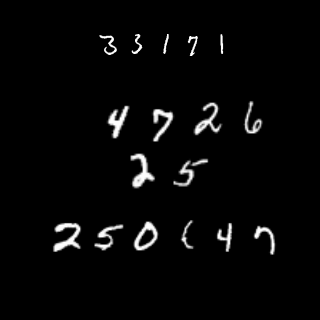 33171
4726
25
250147